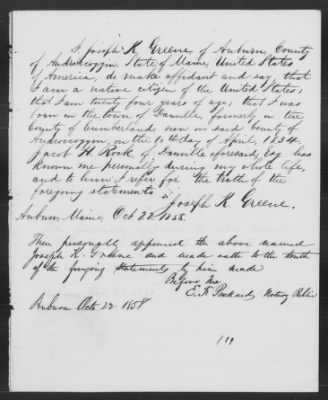 I, Joseph K. Greene, of Auburn, County
of Androscoggin State of Maine, United States
of America, do make affidavit and say, that
I am a native citizen of the United States;
that I am twenty four years of age; that I was
born in the town of Danville, formerly in the
county of Cumberland now in said County of
Androscoggin, on the day of April, 1834.
Jacob H. Rook, of Danville aforesaid, Esq. has
known me personally during my whole life,
and to him I refer for the truth of the
foregoing statements."
Joseph K. Greene.
Auburn Maine, Oct 22 1858.
Then personally appeared the above named
Joseph K. Greene and made oath to the truth
of the forgoing statements by him made
Before me
E. F. Packard, Notary Public
Auburn Oct 22 1858